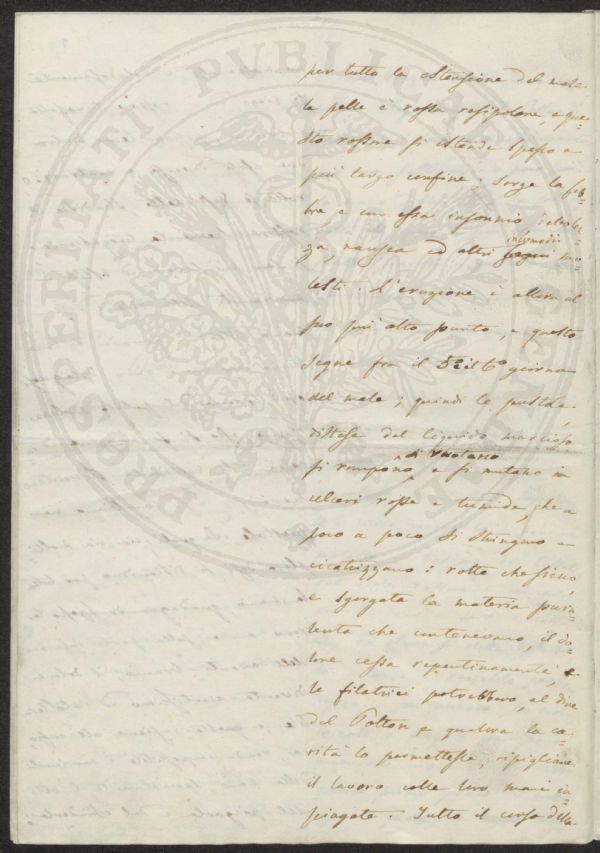 per tutto la estensione del male
la pelle è rossa resipolare e que=
sto rossore si estende spesso a
più largo confine. Sorge la feb=
bre, e con essa insonnio, debolez=
za, nausea ed altri incomodi mo=
lesti. L'eruzione è allora al
suo più alto punto, e questo
segue fra il 5° e il 6° giorno
del male; quindi le pustole,
distese dal liquido marcioso
si rompono, si vuotano e si mutano in
ulceri rosse e tumide, che a
poco a poco si stringono e
cicatrizzano: rotte che sieno,
e sgorgata la materia puru=
lenta che contenevano, il do=
lore cessa repentinamente, e
le filatrici potrebbero, al dire
del Potton, e qualora la ca=
rità lo permettesse, ripigliare
il lavoro colle loro mani im=
piagate. Tutto il corso della
PROSPERITATI PUBLICAE AUGENDAE